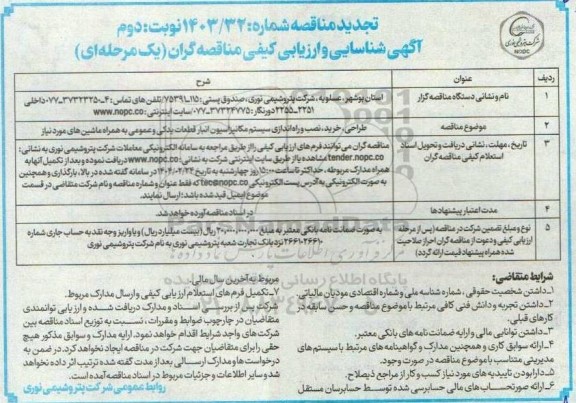 تجدید مناقصه شماره: ۱۴۰۳/۳۲ نوبت: دوم
آگهی شناسایی و ارزیابی کیفی مناقصه گران (یک مرحله‌ای)
شرکت پتروشیمی نوری
NOPC
ردیف
عنوان
شرح
۱
نام و نشانی دستگاه مناقصه گزار
استان بوشهر، عسلویه، شرکت پتروشیمی نوری، صندوق پستی: ۱۱۵-۷۵۳۹۱/ تلفن های تماس: ۴-۰۷۷۳۷۳۲۳۲۵۰ داخلی
۲۲۵۱-۲۲۵۵ دورنگار: ۰۷۷-۳۷۳۲۴۷۷۵ سایت اینترنتی: www.nopc.co
۲
موضوع مناقصه
طراحی، خرید، نصب و راه اندازی سیستم مکانیزاسیون انبار قطعات یدکی و عمومی به همراه ماشین های مورد نیاز
۳
تاریخ، مهلت، نشانی دریافت و تحویل اسناد
استعلام کیفی مناقصه گران
مناقصه گران می توانند فرم های ارزیابی کیفی را از طریق مراجعه به سامانه الکترونیکی معاملات شرکت پتروشیمی نوری به نشانی:
tender.nopc.co مشاهده یا از طریق سایت اینترنتی شرکت به نشانی: www.nopc.co دریافت نموده و بعد از تکمیل آنها به
همراه مدارک مربوطه، حداکثر تا ساعت ۱۵:۰۰ روز چهارشنبه به تاریخ ۱۴۰۴/۰۲/۲۴ در سامانه گفته شده در بالا، بارگذاری و همچنین
به صورت الکترونیکی به آدرس پست الکترونیکی tec@nopc.co که فقط عنوان و شماره مناقصه و نام شرکت متقاضی در قسمت
موضوع ایمیل قید شده باشد؛ ارسال نمایند.
۴
مدت اعتبار پیشنهادها
در اسناد مناقصه آورده خواهد شد.
۵
نوع و مبلغ تضمین شرکت در مناقصه (پس از مرحله
ارزیابی کیفی و دعوت از مناقصه گران احراز صلاحیت
شده همراه پیشنهاد قیمت ارائه گردد)
به صورت ضمانت نامه بانکی معتبر به مبلغ ریال و یا واریز وجه نقد به حساب جاری شماره
۲۶۶۱۰۲۶۶۱۰ نزد بانک تجارت شعبه پتروشیمی نوری به نام شرکت پتروشیمی نوری
شرایط متقاضی:
۱-داشتن شخصیت حقوقی، شماره شناسه ملی و شماره اقتصادی مودیان مالیاتی.
۲-داشتن تجربه و دانش فنی کافی مرتبط با موضوع مناقصه و حسن سابقه در
کارهای قبلی.
۳-داشتن توانایی مالی و ارایه ضمانت نامه های بانکی معتبر.
۴-ارائه سوابق کاری و همچنین مدارک و گواهینامه های مرتبط با سیستم های
مدیریتی متناسب با موضوع مناقصه در صورت وجود.
۵-دارا بودن تأییدیه های مورد نیاز کسب و کار از مراجع ذیصلاح.
۶-ارائه صورتحساب های مالی حسابرسی شده توسط حسابرسان مستقل
مربوط به آخرین سال مالی.
۷-تکمیل فرم های استعلام ارزیابی کیفی و ارسال مدارک مربوط.
شرکت پس از بررسی اسناد و مدارک دریافت شده و ارزیابی توانمندی
متقاضیان در چارچوب ضوابط و مقررات، نسبت به توزیع اسناد مناقصه بین
شرکت های واجد شرایط اقدام خواهد نمود. ارایه مدارک و سوابق مذکور هیچ
حقی را برای متقاضیان جهت شرکت در مناقصه ایجاد نخواهد کرد. در ضمن به
درخواست ها و مدارک ارسالی بعد از مدت گفته شده ترتیب اثر داده نخواهد
شد و سایر اطلاعات و جزئیات مربوط در اسناد مناقصه آمده است.
روابط عمومی شرکت پتروشیمی نوری